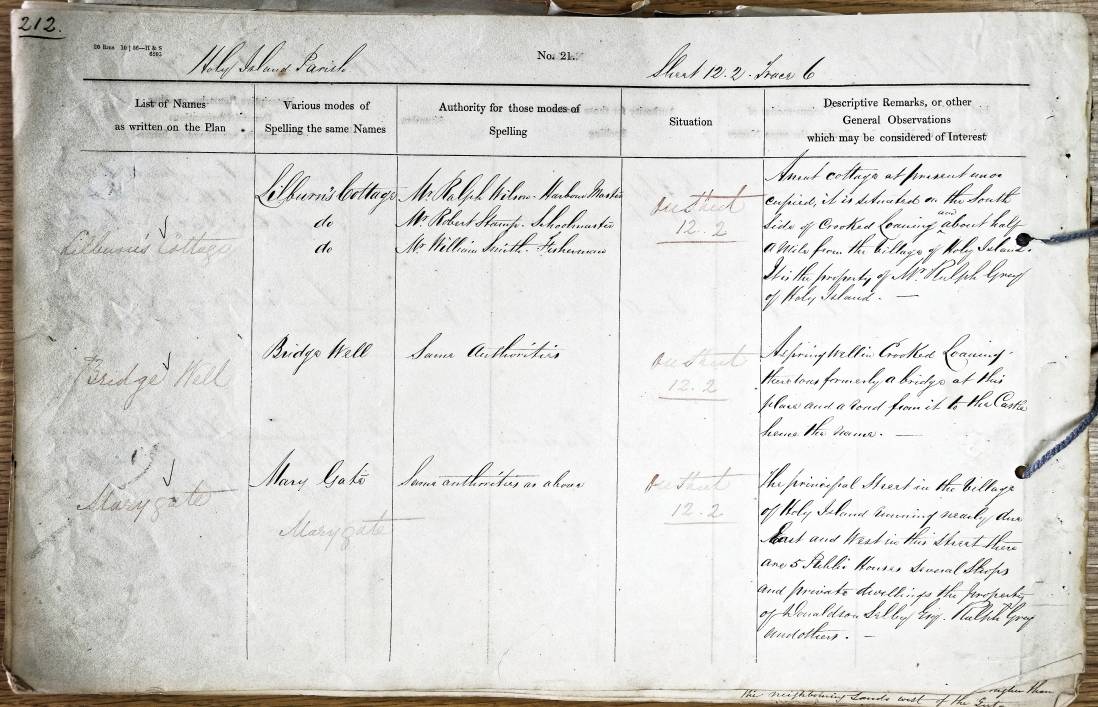 212.
Holy Island Parish
No. 21.
Sheet 12.2. Trace 6
List of Names
as written on the Plan
Various modes of
Spelling the same Names
Authority for those modes of
Spelling
Situation
Descriptive Remarks, or other
General Observations
which may be considered of Interest
Lilburn's Cottage
Lilburn's Cottage
do
do
Mr. Ralph Wilson. Harbour Master
Mr. Robert Stamp. Schoolmaster
Mr. William Smith. Fisherman
On Sheet
12.2
A neat cottage at present unoc
cupied, it is situated on the South
Side of Crooked Loaning and about half
a Mile from the Village of Holy Island.
It is the property of Mr. Ralph Grey
of Holy Island. —
Bridge Well
Bridge Well
Same Authorities
On Sheet
12.2
A spring Well in Crooked Loaning.
there was formerly a bridge at this
place and a road from it to the Castle
hence the name. —
Marygate
Mary Gate
Marygate
Same authorities as above
On Sheet
12.2
The principal Street in the Village
of Holy Island running nearly due
East and West in this Street there
are 5 Public Houses Several Shops
and private dwellings the property
of Donaldson Selby Esq. Ralph Grey
and others. —
higher than
the neighbouring Sands west of the